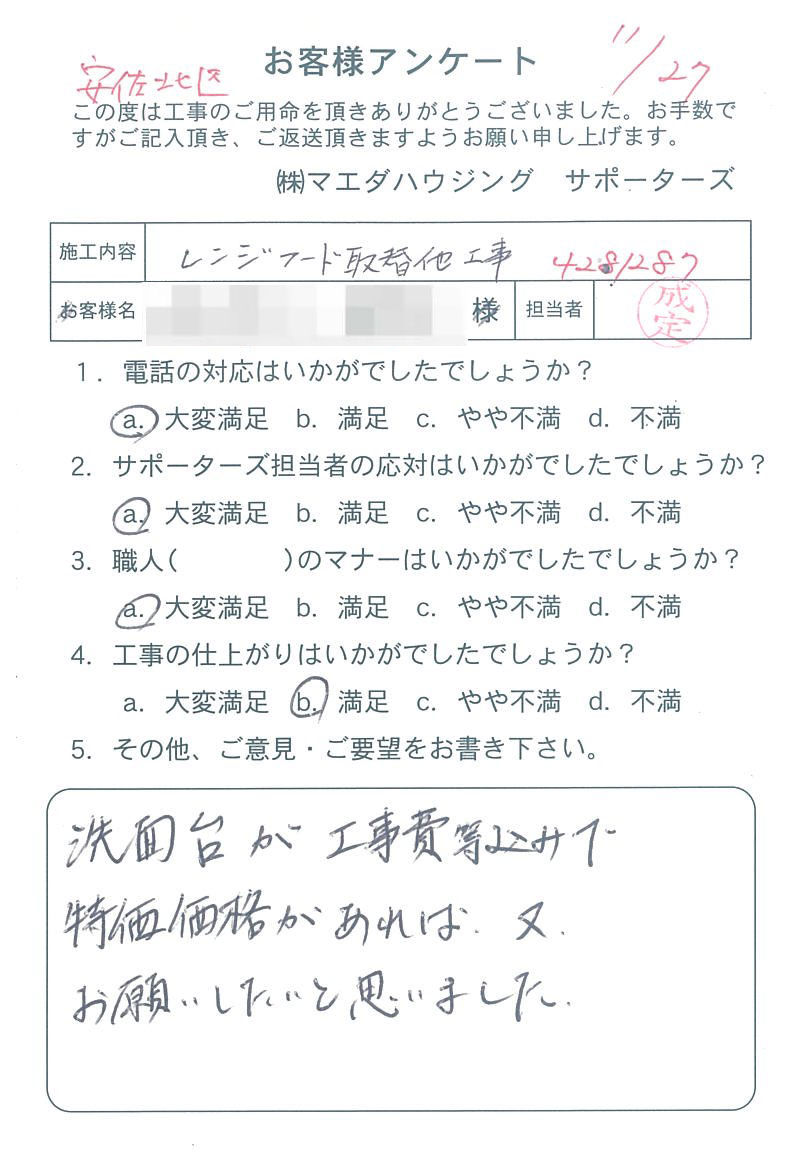 安佐北区
お客様アンケート
11/27
この度は工事のご用命を頂きありがとうございました。お手数で
すがご記入頂き、ご返送頂きますようお願い申し上げます。
㈱マエダハウジング　サポーターズ
施工内容 レンジフード取替他工事 4281287
お客様名 様 担当者 成定
1. 電話の対応はいかがでしたでしょうか？
a. 大変満足 b. 満足 c. やや不満 d. 不満
2. サポーターズ担当者の応対はいかがでしたでしょうか？
a. 大変満足 b. 満足 c. やや不満 d. 不満
3. 職人(　　　　)のマナーはいかがでしたでしょうか？
a. 大変満足 b. 満足 c. やや不満 d. 不満
4. 工事の仕上がりはいかがでしたでしょうか？
a. 大変満足 b. 満足 c. やや不満 d. 不満
5. その他、ご意見・ご要望をお書き下さい。
洗面台が工事費等込みで
特価価格があれば、又、
お願いしたいと思いました。